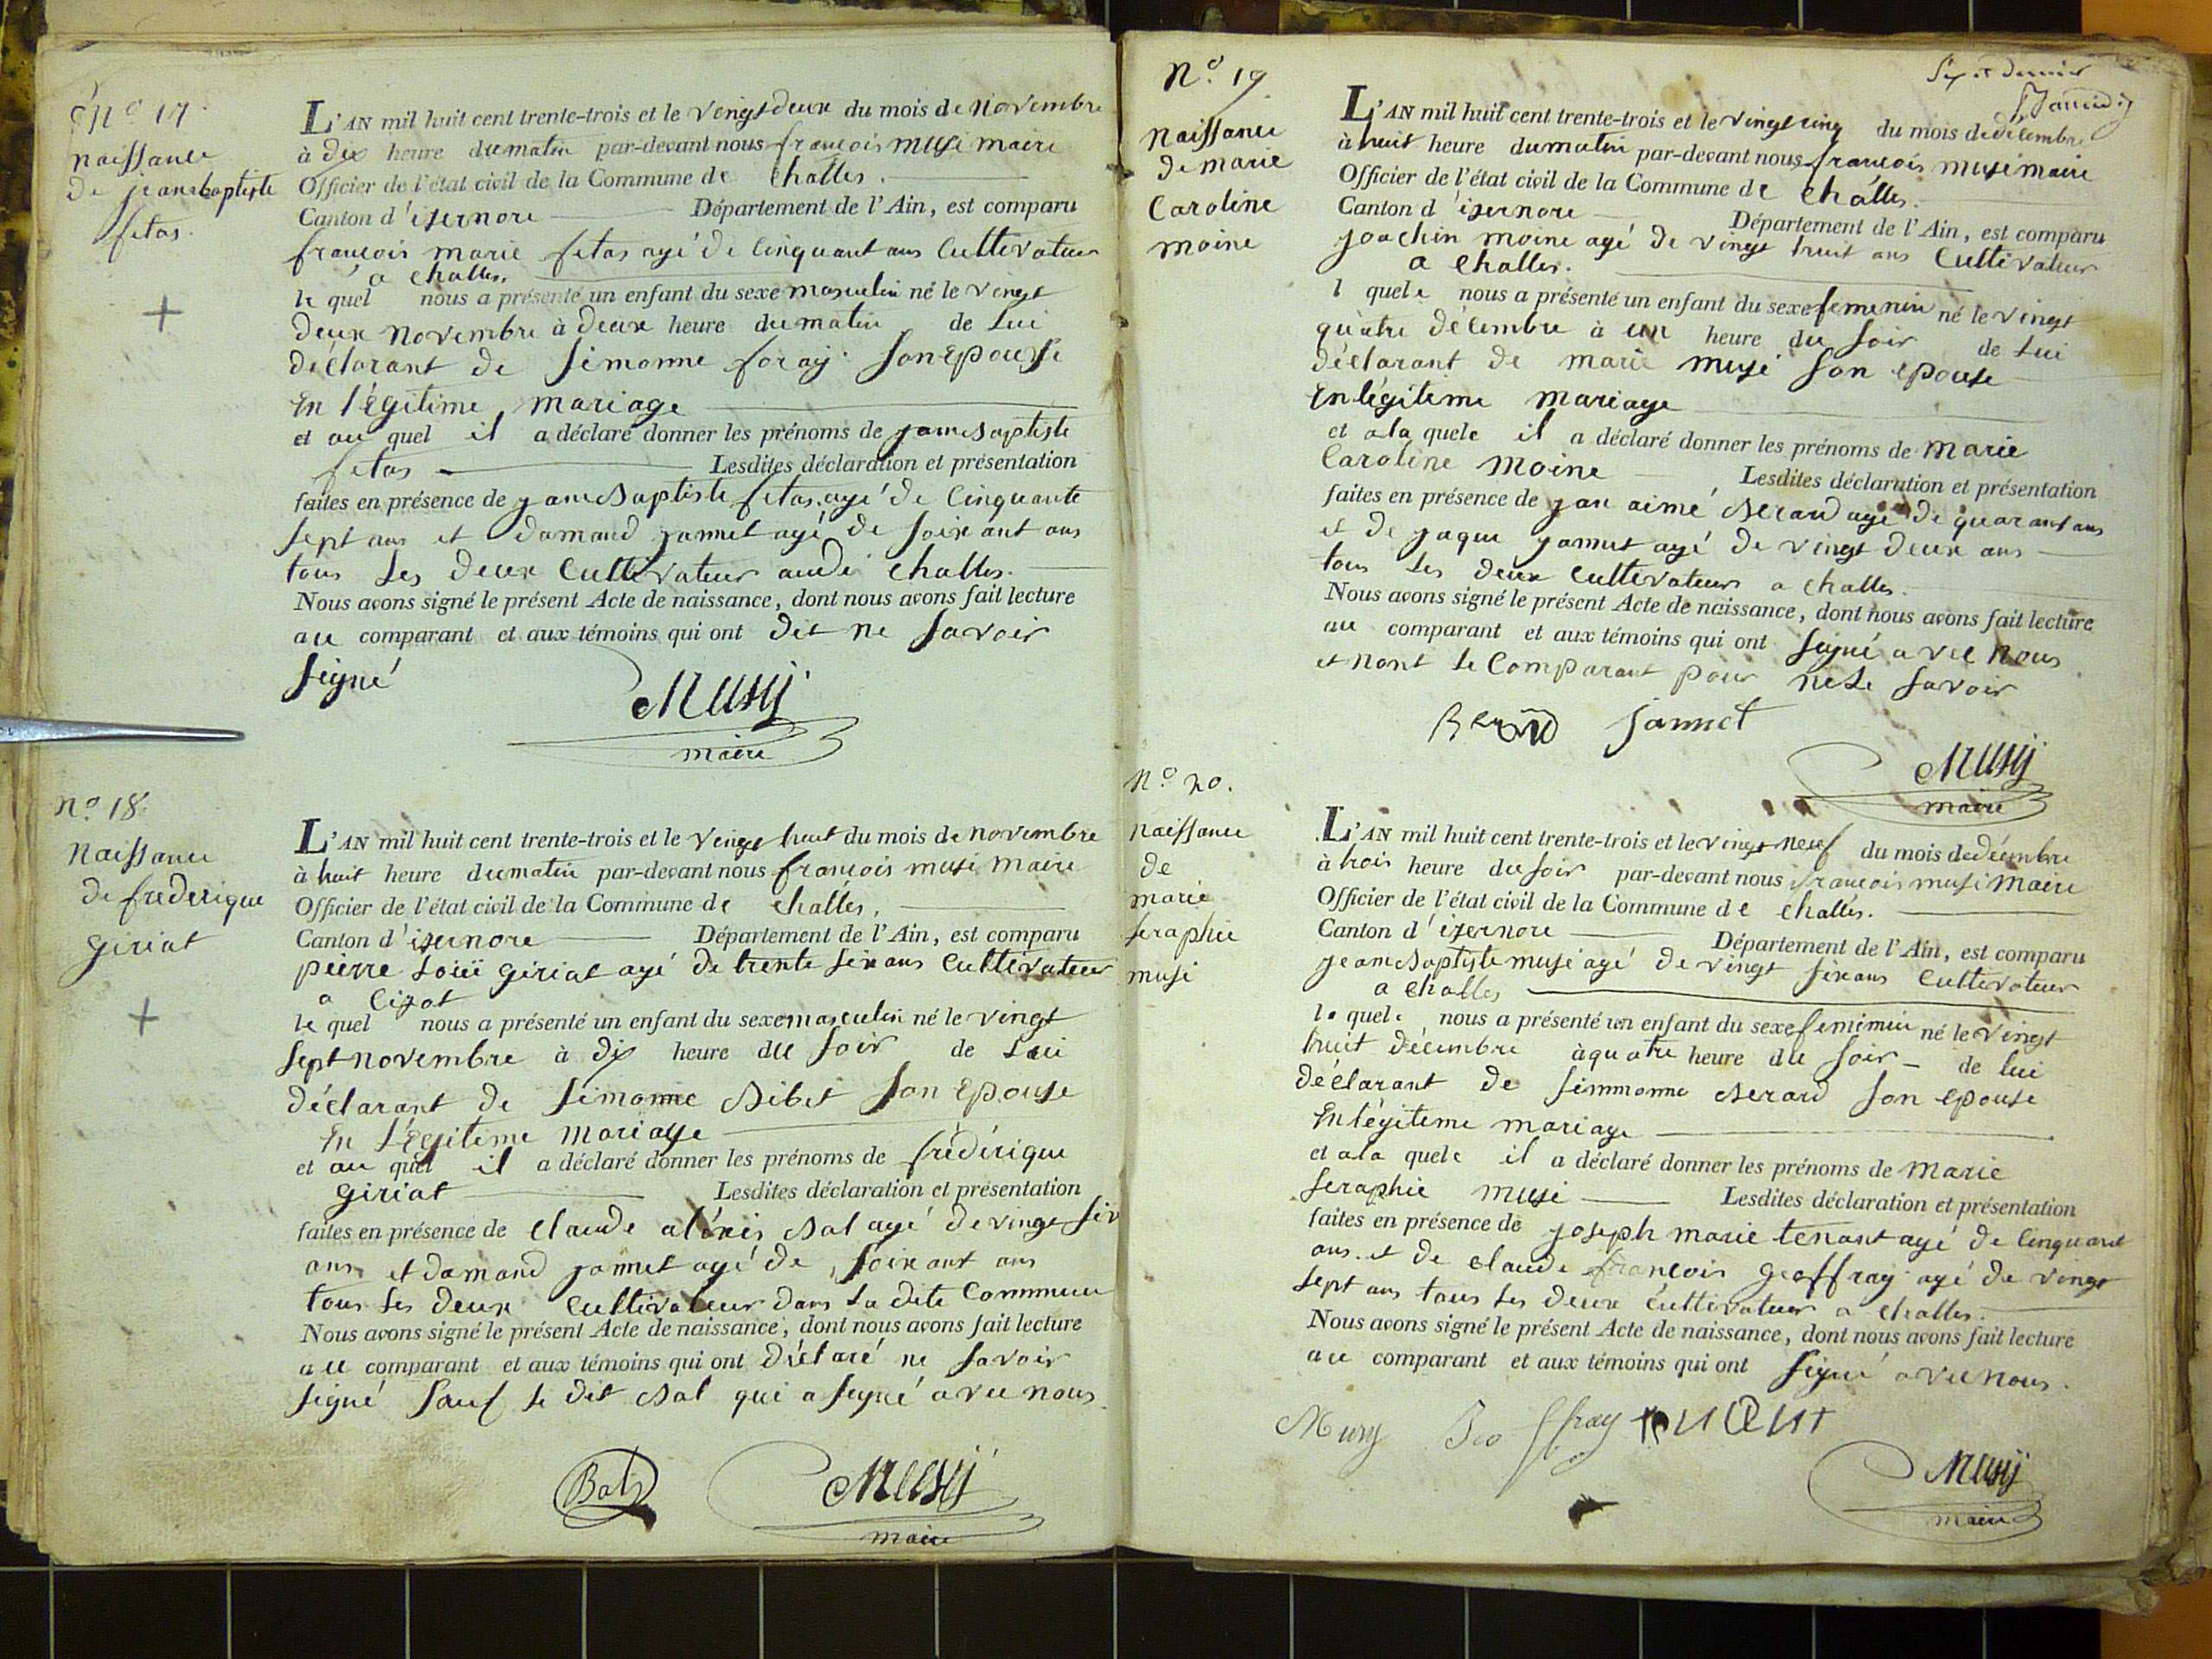 N° 17.
naissance
de jeanbaptiste
fetas.
L'AN mil huit cent trente-trois et le vingtdeux du mois de Novembre
à dix heure dumatin par-devant nous françois musi maire
Officier de l'état civil de la Commune de challes.
Canton d'izernore Département de l'Ain, est comparu
françois marie fetas agé de cinquant ans cultivateur
a challes.
le quel nous a présenté un enfant du sexe masculin né le vingt
deux novembre à deux heure dumatin de lui
déclarant de simonne foray son epouse
En légitime mariage
et au quel il a déclaré donner les prénoms de jeanbaptiste
fetas Lesdites déclaration et présentation
faites en présence de jeanbaptiste fetas agé de cinquante
sept ans et damand jannet agé de soixant ans
tous les deux cultivateur audi challes.
Nous avons signé le présent Acte de naissance, dont nous avons fait lecture
au comparant et aux témoins qui ont dit ne savoir
signé
Musy
maire
n° 18.
naissance
de frederique
giriat
L'AN mil huit cent trente-trois et le vingt huit du mois de novembre
à huit heure dumatin par-devant nous françois musi maire
Officier de l'état civil de la Commune de challes.
Canton d'izernore Département de l'Ain, est comparu
pierre loüi giriat agé de trente six ans cultivateur
a cizot
le quel nous a présenté un enfant du sexe masculin né le vingt
sept novembre à dix heure du soir de lui
déclarant de simonne bibet son epouse
En légitime mariage
et au quel il a déclaré donner les prénoms de frédérique
giriat Lesdites déclaration et présentation
faites en présence de claude aléxis bal agé de vingt six
ans et damand jannet agé de soixant ans
tous les deux cultivateur dans la dite commune
Nous avons signé le présent Acte de naissance, dont nous avons fait lecture
au comparant et aux témoins qui ont déclaré ne savoir
signé sauf le dit bal qui a signé avec nous.
Bal
Musy
maire
N° 19.
naissance
de marie
caroline
moine
L'AN mil huit cent trente-trois et le vingtcinq du mois de décembre
à huit heure dumatin par-devant nous françois musi maire
Officier de l'état civil de la Commune de challes.
Canton d'izernore Département de l'Ain, est comparu
joachin moine agé de vingt huit ans cultivateur
a challes.
lequele nous a présenté un enfant du sexe femenin né le vingt
quatre décembre à un heure du soir de lui
déclarant de marie musi son epouse
En légitime mariage
et ala quele il a déclaré donner les prénoms de marie
caroline moine Lesdites déclaration et présentation
faites en présence de jan aimé berard agé de quarant ans
et de jaque jannet agé de vingt deux ans
tous les deux cultivateur a challes.
Nous avons signé le présent Acte de naissance, dont nous avons fait lecture
au comparant et aux témoins qui ont signé avec nous
et nont le comparant pour nele savoir
Berard jannet
Musy
maire
N° 20.
naissance
de
marie
seraphie
musi
L'AN mil huit cent trente-trois et le vingt neuf du mois de décembre
à trois heure du soir par-devant nous françois musi maire
Officier de l'état civil de la Commune de challes.
Canton d'izernore Département de l'Ain, est comparu
jeanbaptiste musi agé de vingt six ans cultivateur
a challes
le quele nous a présenté un enfant du sexe feminin né le vingt
huit décembre à quatre heure du soir de lui
déclarant de simmonne berard son epouse
En légitime mariage
et ala quele il a déclaré donner les prénoms de marie
seraphie musi Lesdites déclaration et présentation
faites en présence de joseph marie tenant agé de cinquant
ans et de claude françois geoffray agé de vingt
sept ans tous les deux cultivateur a challes.
Nous avons signé le présent Acte de naissance, dont nous avons fait lecture
au comparant et aux témoins qui ont signé avec nous.
Musy Geoffray
Musy
maire